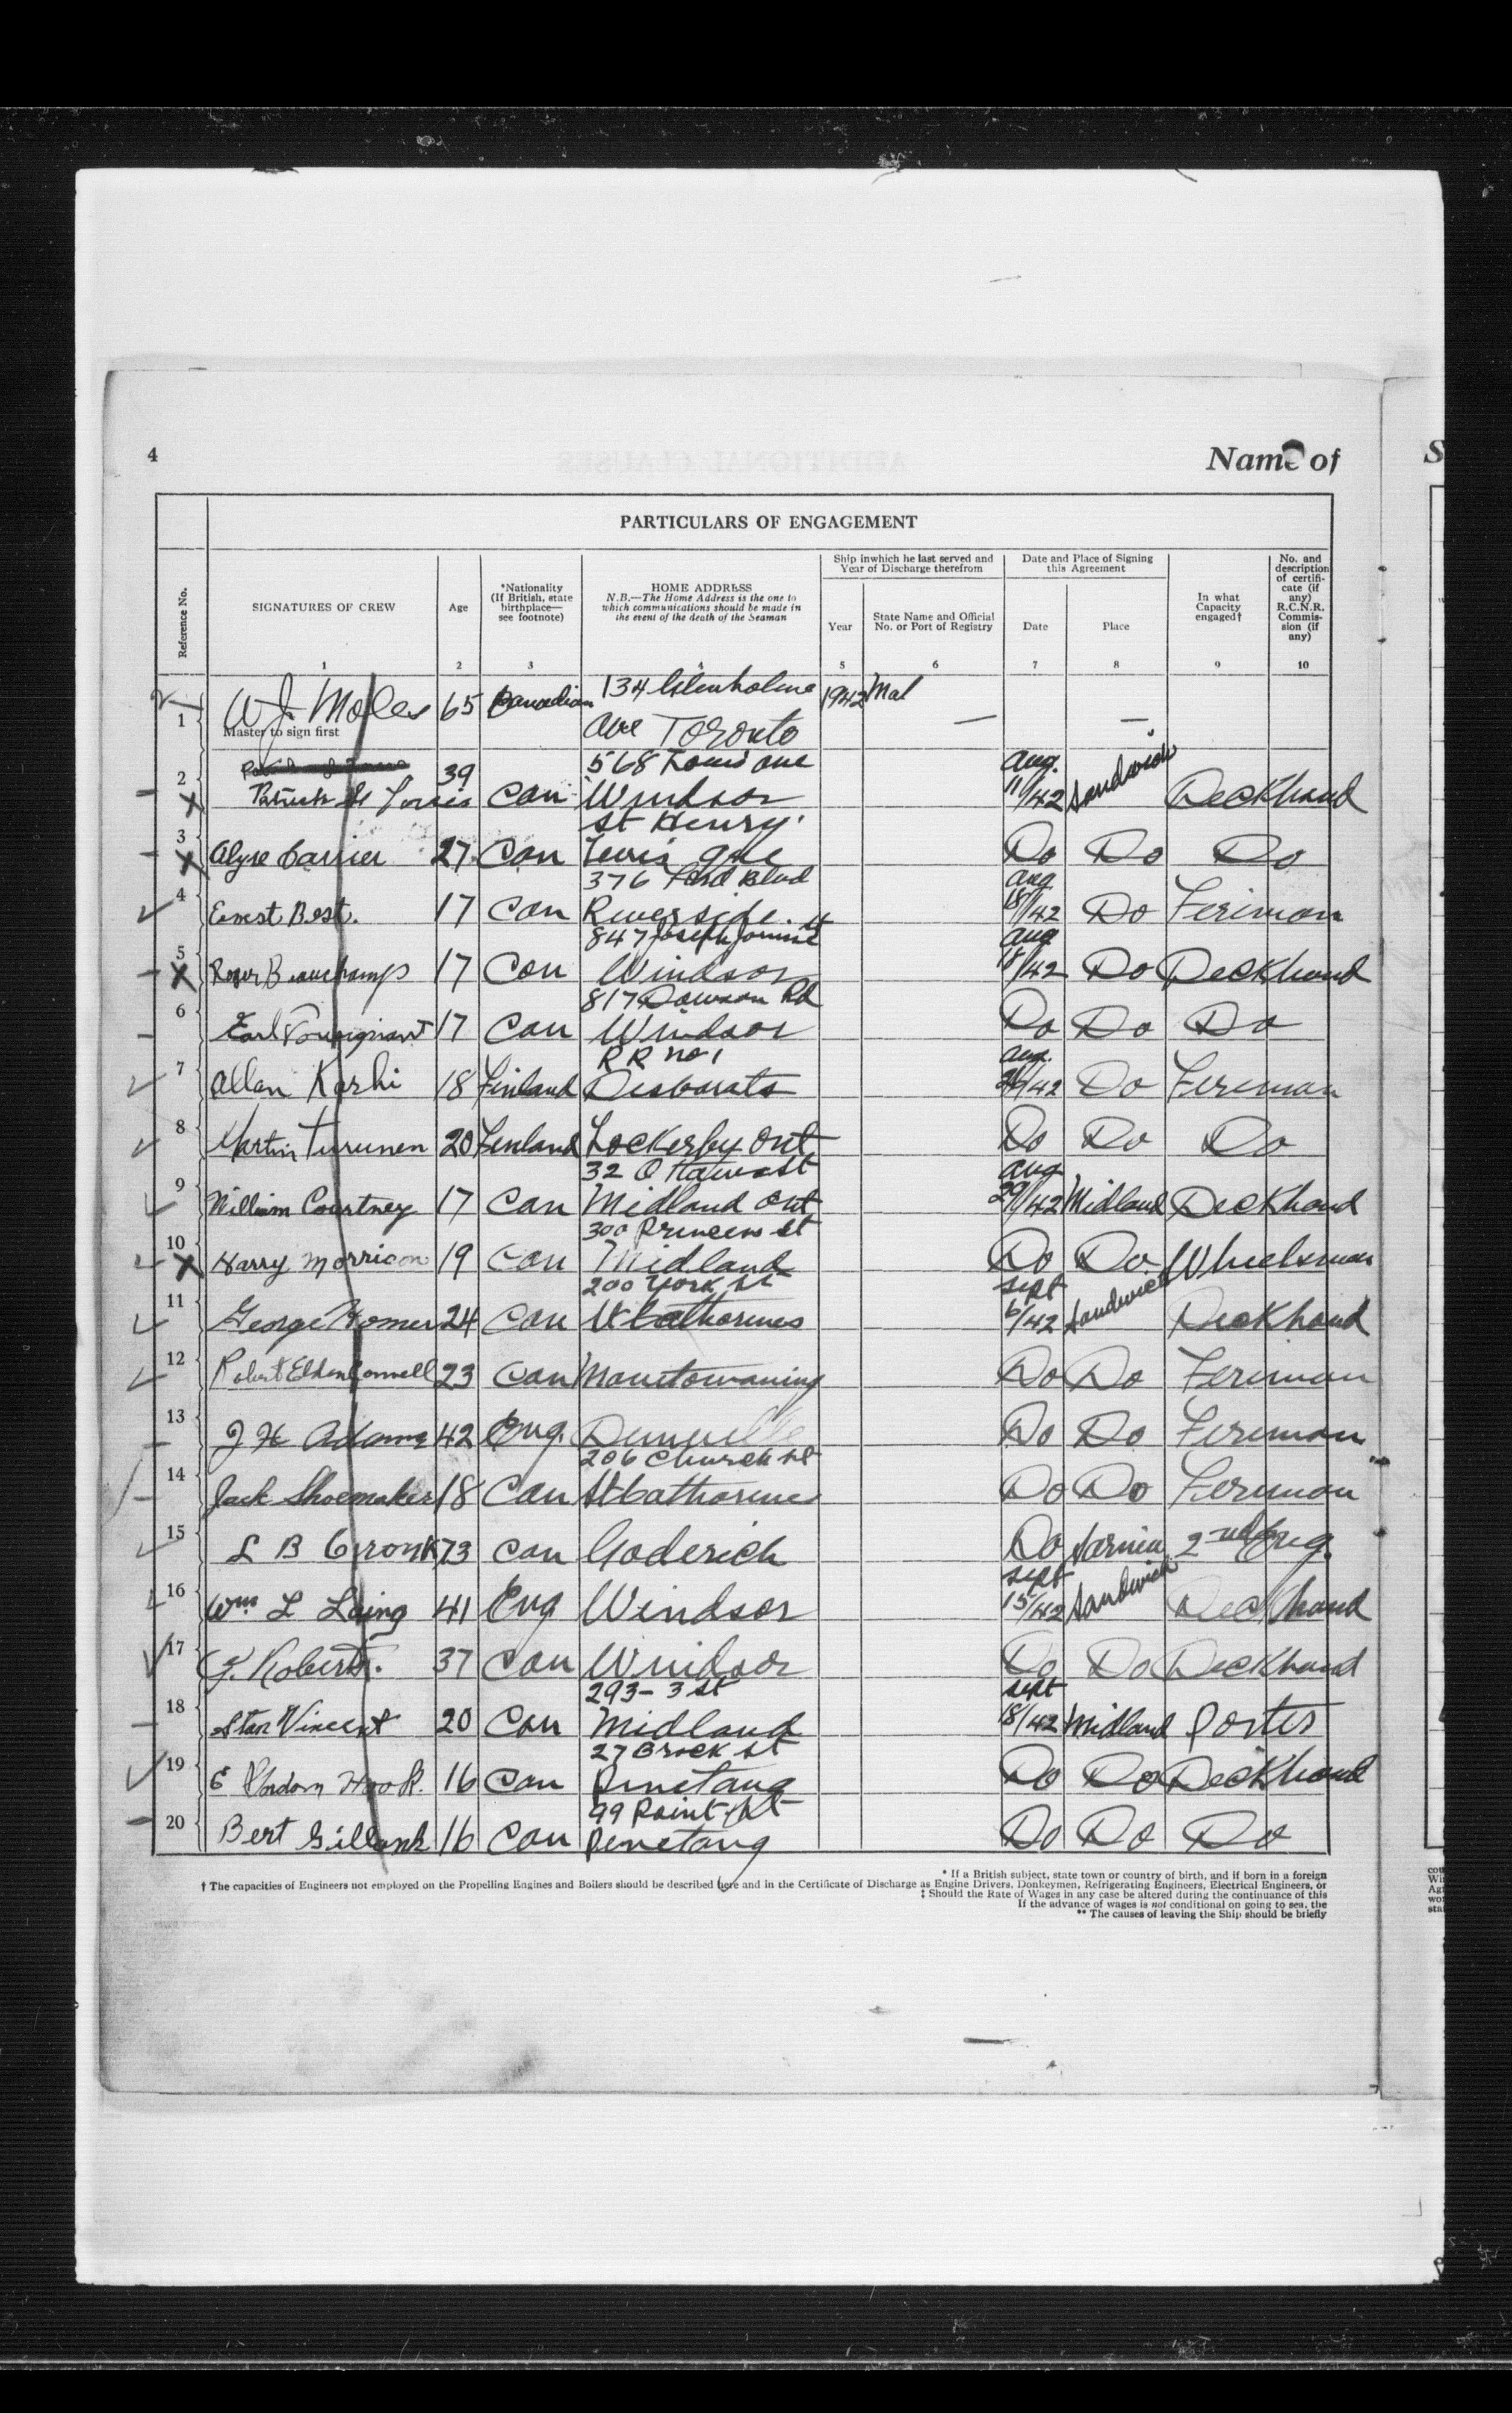 4
Name of
S
PARTICULARS OF ENGAGEMENT
Reference No.
SIGNATURES OF CREW
Age
*Nationality
(If British, state
birthplace—
see footnote)
HOME ADDRESS
N.B.—The Home Address is the one to
which communications should be made in
the event of the death of the Seaman
Ship inwhich he last served and
Year of Discharge therefrom
Year
State Name and Official
No. or Port of Registry
Date and Place of Signing
this Agreement
Date
Place
In what
Capacity
engaged†
No. and
description
of certifi-
cate (if
any)
R.C.N.R.
Commis-
sion (if
any)
1 2 3 4 5 6 7 8 9 10
134 Glenholme
1 W J Moles 65 Canadian Ave Toronto 1942 Mal — —
Master to sign first
568 Louis ave
2 Patrick St Louis 39 Can Windsor Aug. 11/42 Sandwich Deckhand
St Henry
3 Carrier 27 Can Levis Que Do Do Do
376 Ford Blvd
4 Ernest Best. 17 Can Riverside. Aug 18/42 Do Fireman
847 Joseph
5 Roger Beauchamp 17 Can Windsor Aug 18/42 Do Deckhand
817 Dawson Rd
6 Earl 17 Can Windsor Do Do Do
RR No 1
7 Allan Karhi 18 Finland Desbarats Aug. 26/42 Do Fireman
8 Martin Turunen 20 Finland Lockerby Ont Do Do Do
32 Ottawa St
9 William Courtney 17 Can Midland Ont Aug 29/42 Midland Deckhand
300 Princess St
10 Harry Morrison 19 Can Midland Do Do Wheelsman
200 York St
11 George Homer 24 Can St Catharines Sept 6/42 Sandwich Deckhand
12 Robert Elden Connell 23 Can Manitowaning Do Do Fireman
13 J H Adams 42 Eng. Dunnville Do Do Fireman
206 Church St
14 Jack Shoemaker 18 Can St Catharines Do Do Fireman
15 L B Cronk 73 Can Goderich Do Sarnia 2nd Eng.
16 Wm L Laing 41 Eng Windsor Sept 15/42 Sandwich Deckhand
17 Roberts. 37 Can Windsor Do Do Deckhand
293 - 3 St
18 Stan Vincent 20 Can Midland Sept 18/42 Midland Porter
27 Brock St
19 E Gordon Hook. 16 Can Penetang Do Do Deckhand
99 Point St
20 Bert Gillank 16 Can Penetang Do Do Do
* If a British subject, state town or country of birth, and if born in a foreign
† The capacities of Engineers not employed on the Propelling Engines and Boilers should be described here and in the Certificate of Discharge as Engine Drivers, Donkeymen, Refrigerating Engineers, Electrical Engineers, or
‡ Should the Rate of Wages in any case be altered during the continuance of this
If the advance of wages is not conditional on going to sea, the
** The causes of leaving the Ship should be briefly